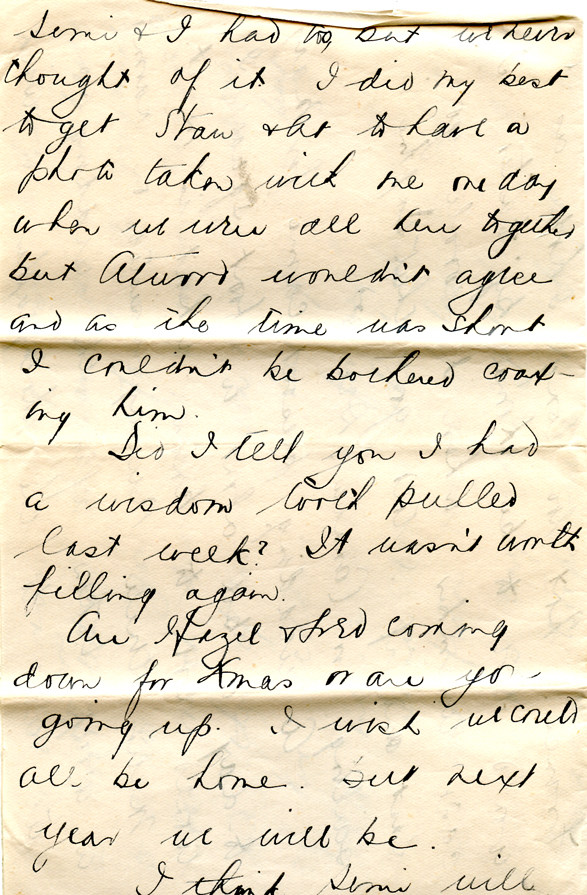 Semi & I had to, but we never
thought of it. I did my best
to get Stan & At to have a
photo taken with me one day
when we were all here together
but Atwood wouldn't agree
and as the time was short
I couldn't be bothered coax-
ing him.
Did I tell you I had
a wisdom tooth pulled
last week? It wasn't worth
filling again.
Are Hazel & Fred coming
down for Xmas or are yo
going up. I wish we could
all be home. But next
year we will be.
I think Semi will